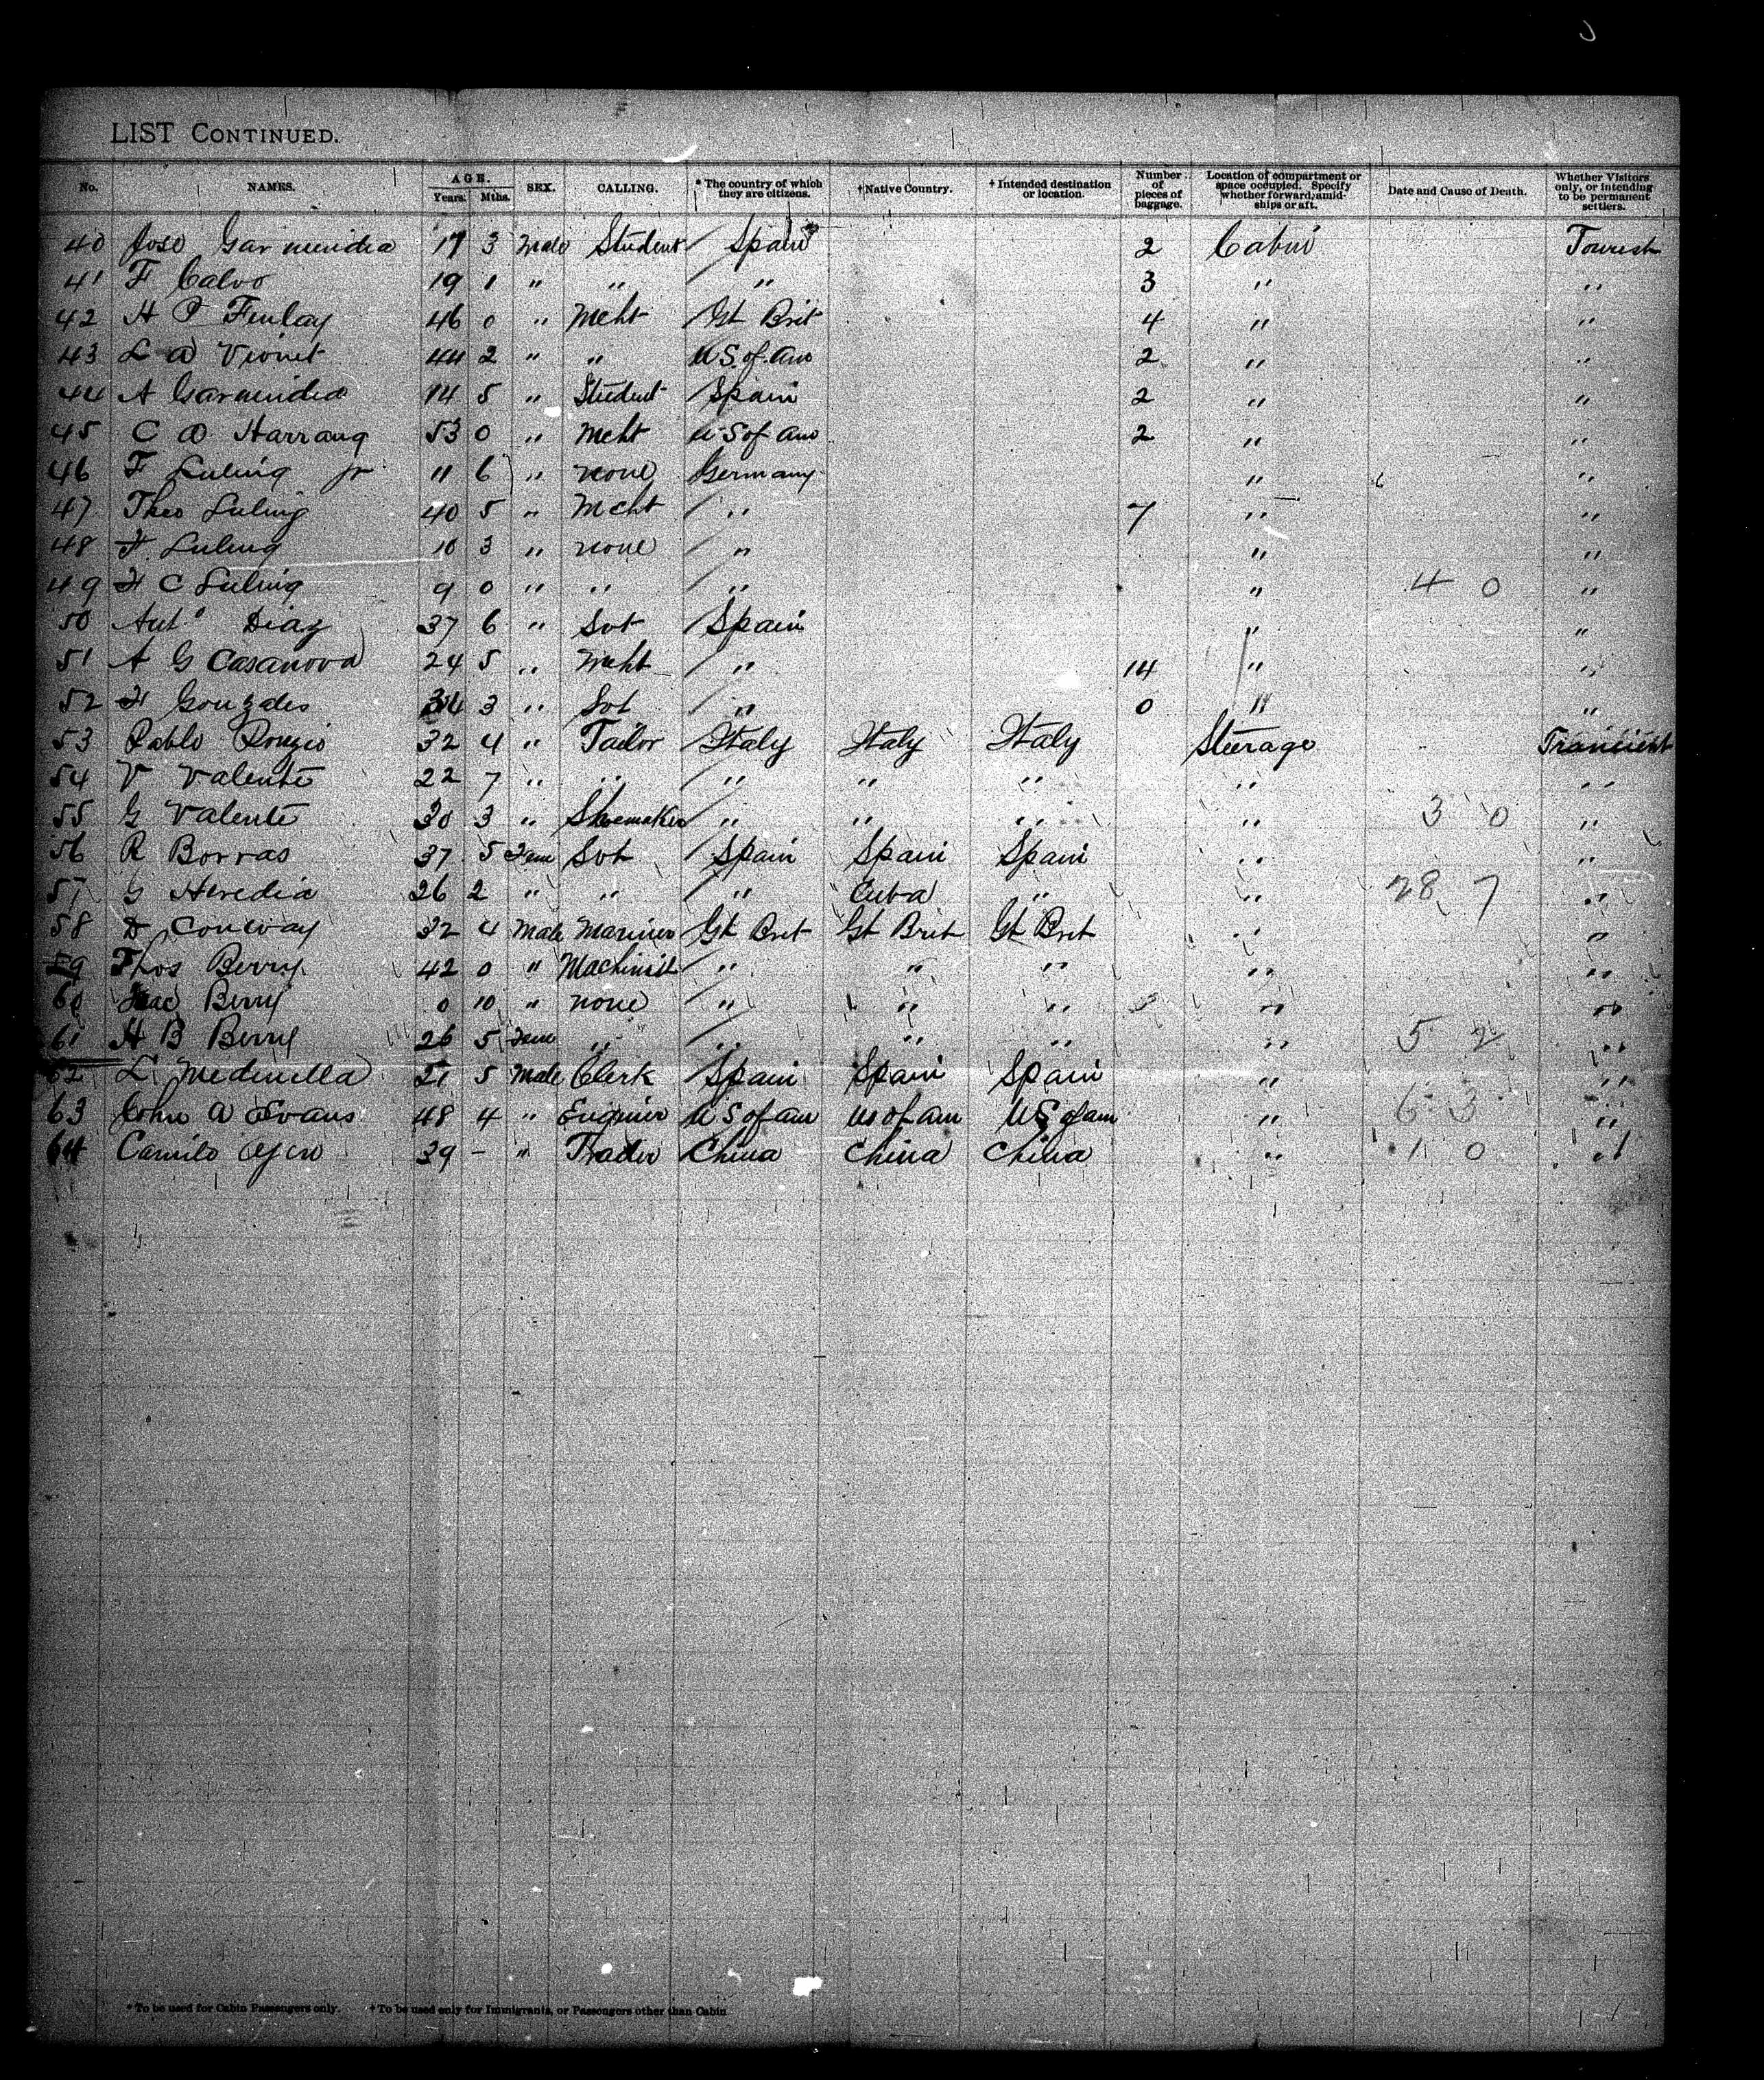 LIST CONTINUED.
No. NAMES. AGE. Years. Mths. SEX. CALLING. * The country of which they are citizens. † Native Country. † Intended destination or location. Number of pieces of baggage. Location of compartment or space occupied. Specify whether forward, amidships or aft. Date and Cause of Death. Whether Visitors only, or intending to be permanent settlers.
40 Jose Garmendia 17 3 Male Student Spain 2 Cabin Tourist
41 F Calvo 19 1 " " " 3 " "
42 H P Finlay 46 0 " Mcht Gt Brit 4 " "
43 L A 44 2 " " U S of Am 2 " "
44 A Garmendia 14 5 " Student Spain 2 " "
45 C A 53 0 " Mcht U S of Am 2 " "
46 F Luling Jr 11 6 " none Germany " "
47 Theo Luling 40 5 " Mcht " 7 " "
48 F. Luling 10 3 " none " " "
49 F C Luling 9 0 " " " " 4 0 "
50 Anto Diaz 37 6 " Svt Spain " "
51 A G Casanova 24 5 " Mcht " 14 " "
52 F Gonzales 34 3 " Svt " 0 " "
53 Pablo 32 4 " Tailor Italy Italy Italy Steerage Transient
54 V Valente 22 7 " " " " " " "
55 G Valente 30 3 " Shoemaker " " " " 3 0 "
56 R Borras 37 5 Fem Svt Spain Spain Spain " "
57 G Heredia 26 2 " " " Cuba " " 28 7 "
58 D Conway 32 4 Male Mariner Gt Brit Gt Brit Gt Brit " "
59 Thos Berry 42 0 " Machinist " " " " "
60 Isac Berry 0 10 " none " " " " "
61 H B Berry 26 5 Fem " " " " " 5 2 "
62 L Medinilla 21 5 Male Clerk Spain Spain Spain " "
63 John A Evans 48 4 " Enginier U S of am us of am US of am " 6 3 "
64 Camilo 39 - " Trader China China China " 1 0 "
* To be used for Cabin Passengers only. † To be used only for Immigrants, or Passengers other than Cabin